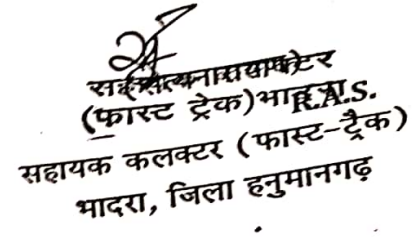 (फास्ट ट्रेक) R.A.S.
सहायक कलक्टर (फास्ट-ट्रैक)
भादरा, जिला हनुमानगढ़